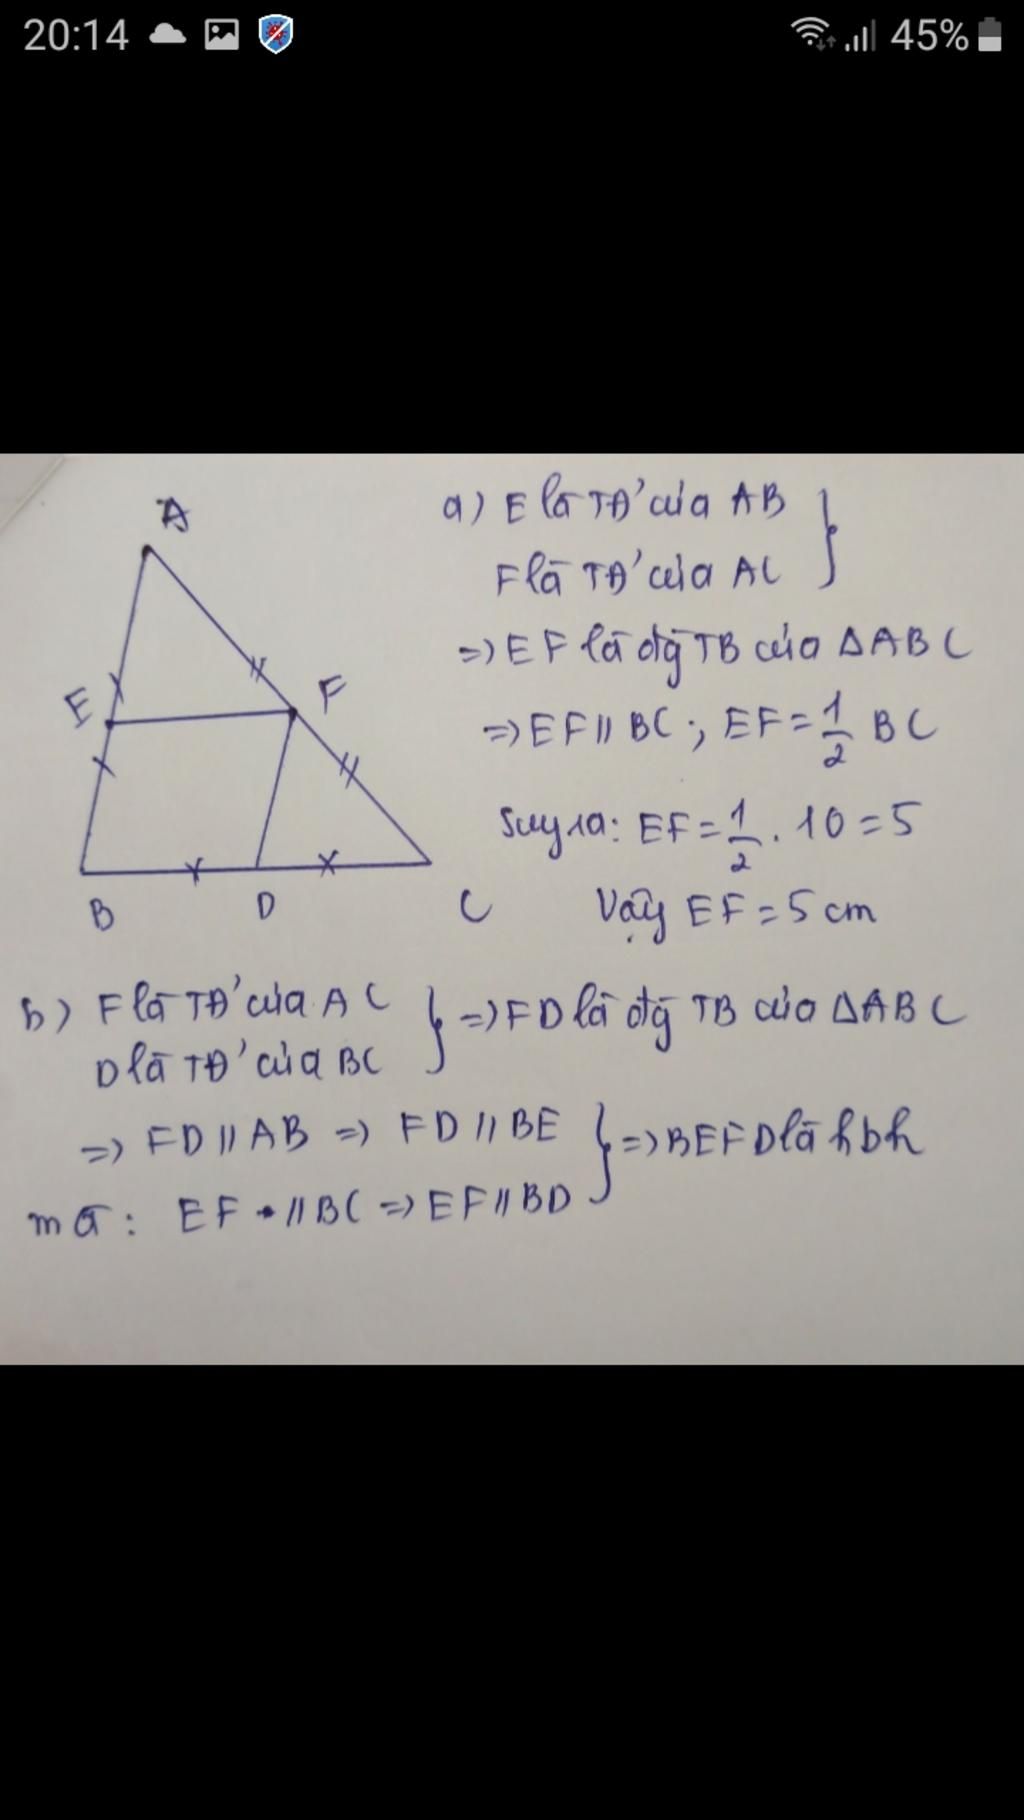 20:14 45%
A
E F
B D C
a) E là TĐ' của AB
F là TĐ' của AC
=> EF là đg TB của ΔABC
=> EF // BC ; EF = 1/2 BC
Suy ra: EF = 1/2 . 10 = 5
Vậy EF = 5 cm
b) F là TĐ' của AC } => FD là đg TB của ΔABC
D là TĐ' của BC
=> FD // AB => FD // BE } => BEFD là hbh
mà : EF // BC => EF // BD